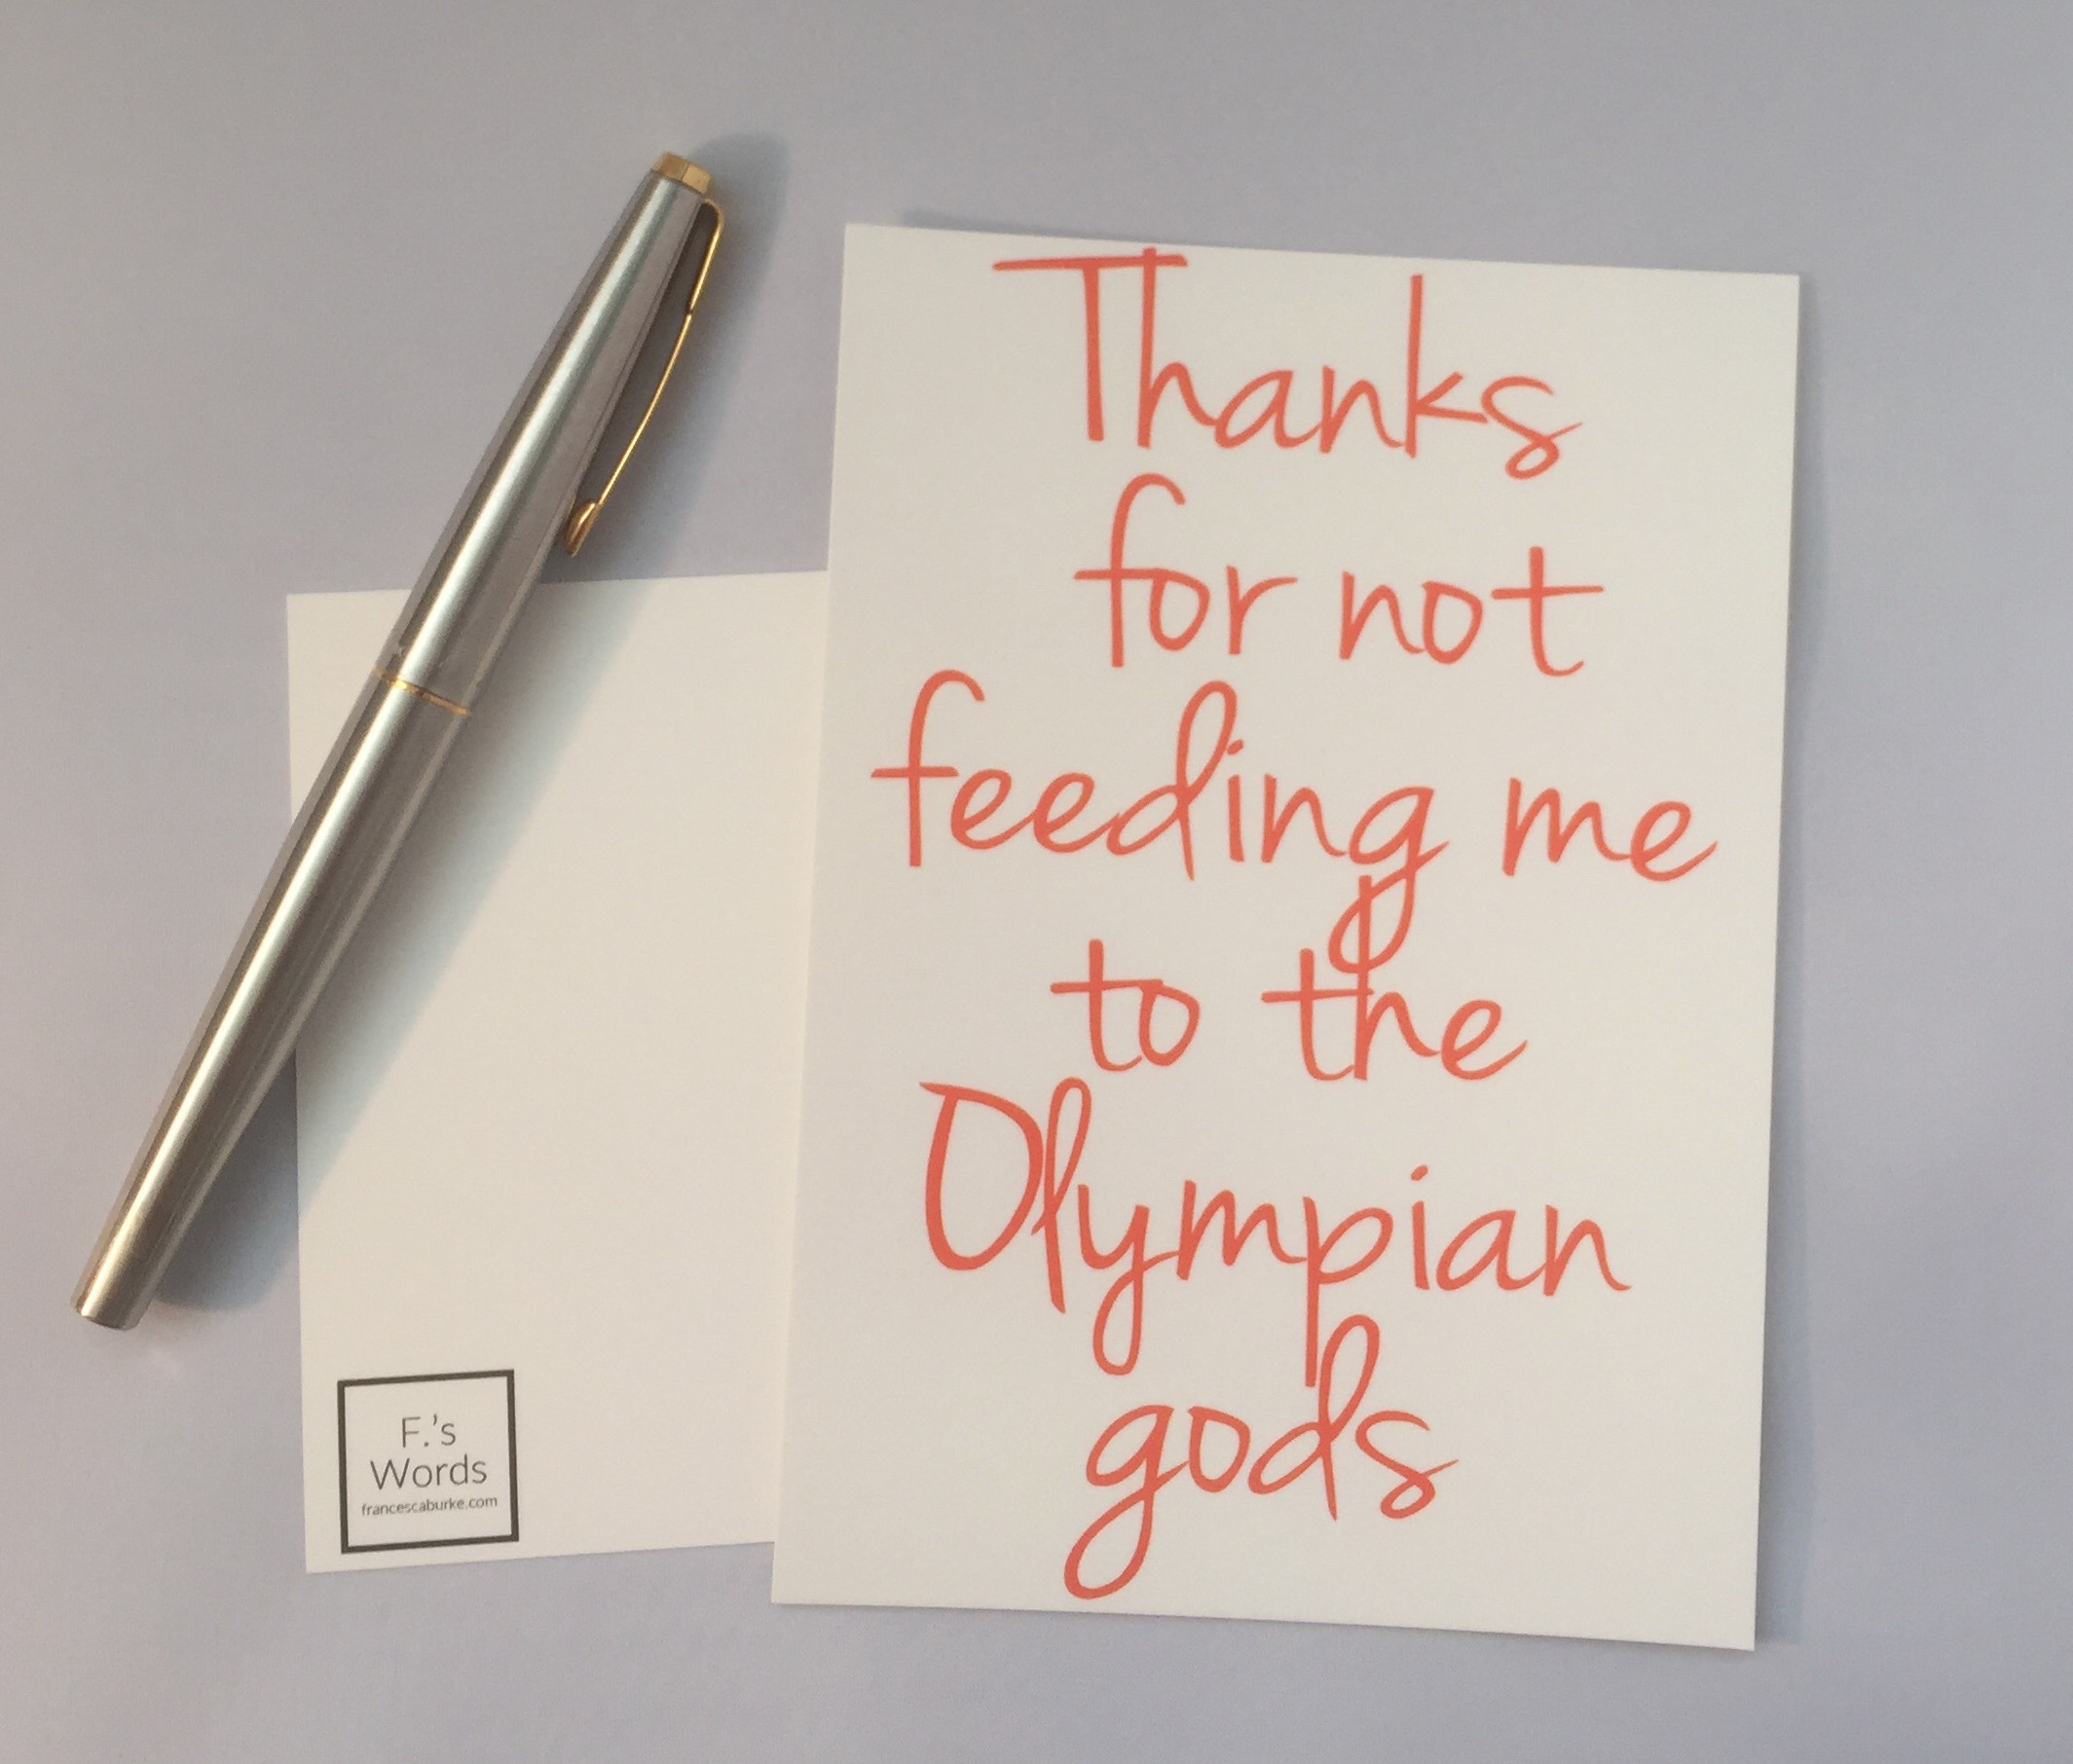 Thanks
for not
feeding me
to the
Olympian
gods
F.'s
Words
francescaburke.com